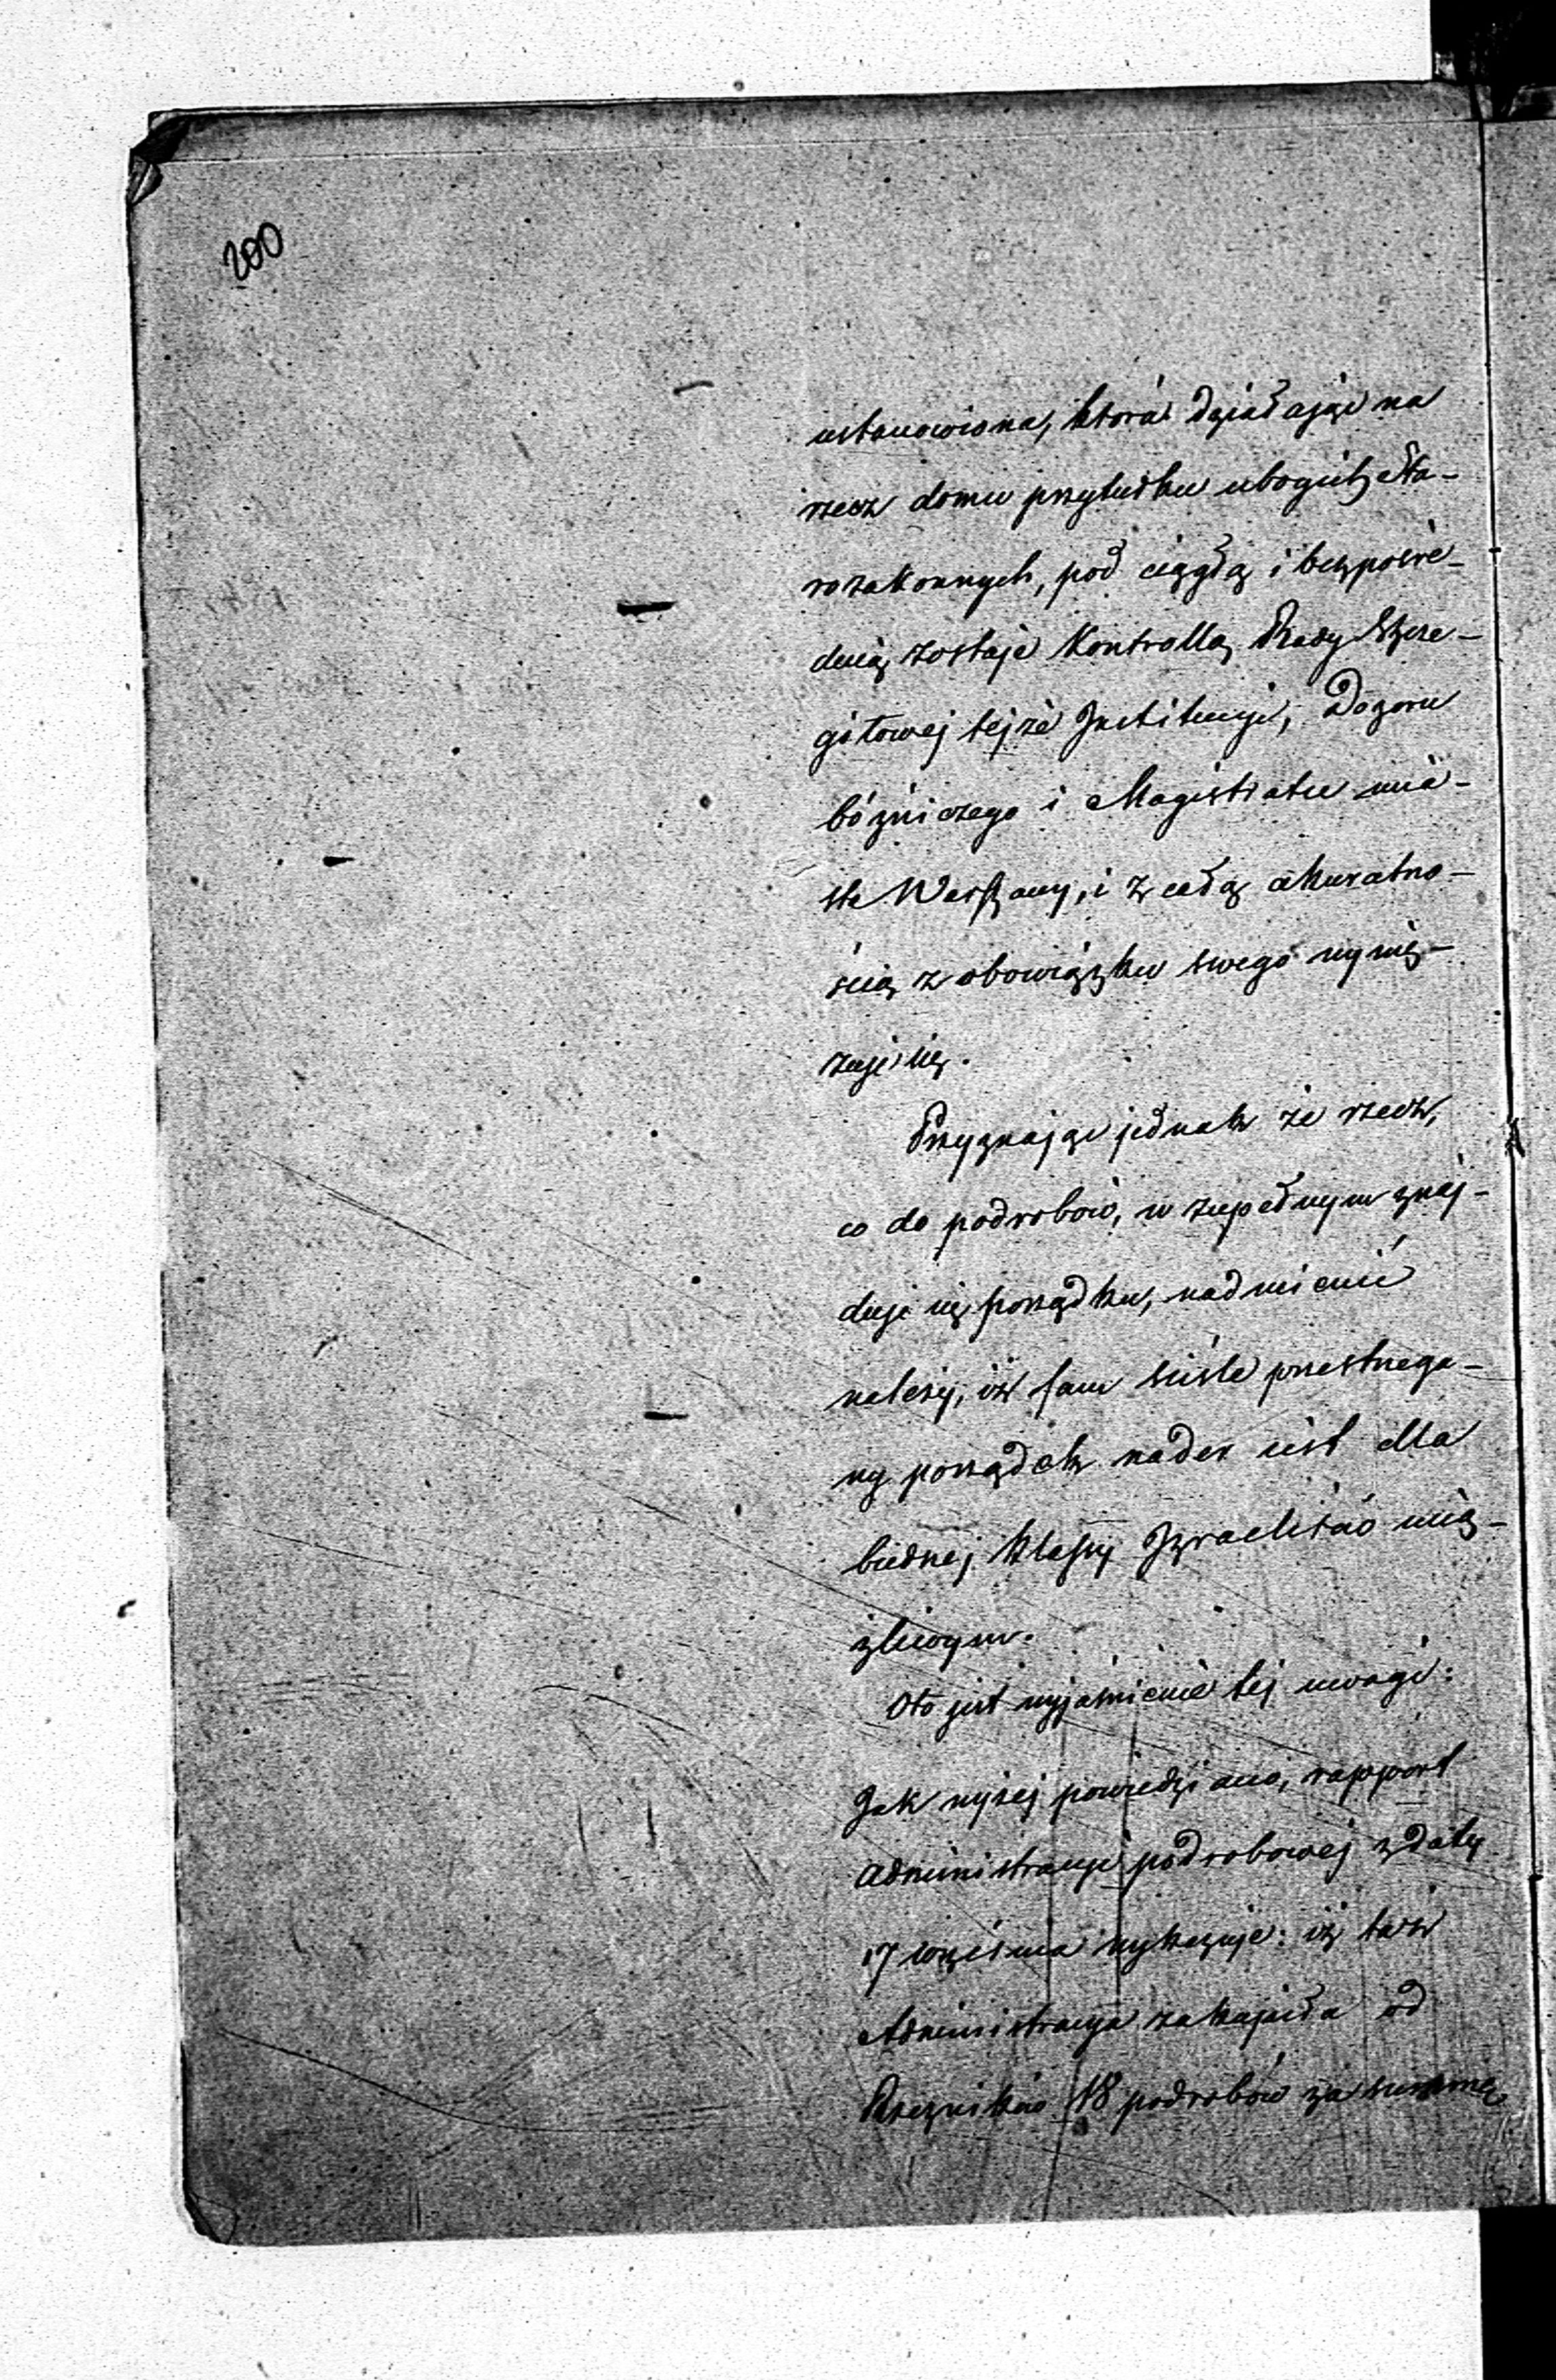 200
ustanowiona, która działając na
rzecz domu przytułku ubogich Sta-
rozakonnych, pod ciągłą i bezpośre-
dnią zostaje Kontrollą Rady Szcze-
gółowej tejże Instytucyi, Dozoru
bóżniczego i Magistratu mia-
sta Warszawy, i z całą akuratno-
ścią z obowiązku swego wywię-
zuje się.
Przyznając jednak że rzecz,
co do podrobów, w zupełnym znaj-
duje się porządku, nadmienić
należy, iż tam ściśle przestrzega-
ny porządek nader jest dla
biednej klassy Izraelitów ucią-
żliwym.
Oto jest wyjaśnienie tej uwagi:
Jak wyżej powiedziano, rapport
Administracyi podrobowej z daty
17 września wykazuje: iż taż
Administracya zakupiła od
Rzeźników 18 podrobów za summę